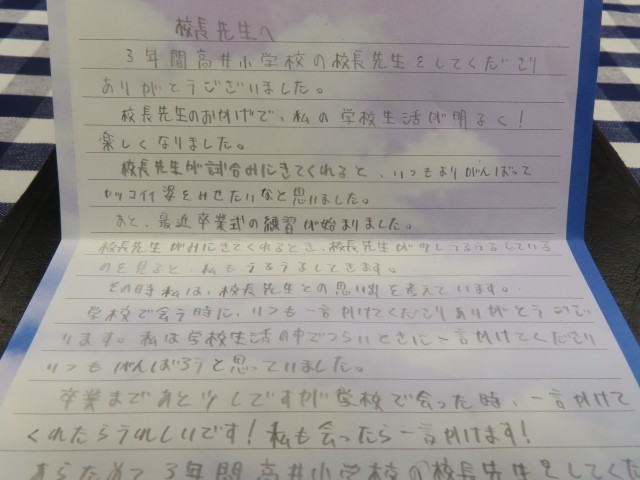 校長先生へ
3年間高井小学校の校長先生をしてくださり
ありがとうございました。
校長先生のおかげで、私の学校生活が明るく!
楽しくなりました。
校長先生が試合みにきてくれると、いつもよりがんばって
カッコイイ姿をみせたいなと思いました。
あと、最近卒業式の練習が始まりました。
校長先生がみにきてくれるとき、校長先生が少しうるうるしている
のを見ると、私もうるうるしてきます。
その時私は、校長先生との思い出を考えています。
学校で会う時に、いつも一言かけてくださりありがとうござい
ます。私は学校生活の中でつらいときに一言かけてくださり
いつもがんばろうと思っていました。
卒業まであと少しですが学校で会った時、一言かけて
くれたらうれしいです!私も会ったら一言かけます!
あらためて3年間高井小学校の校長先生をしてくだ